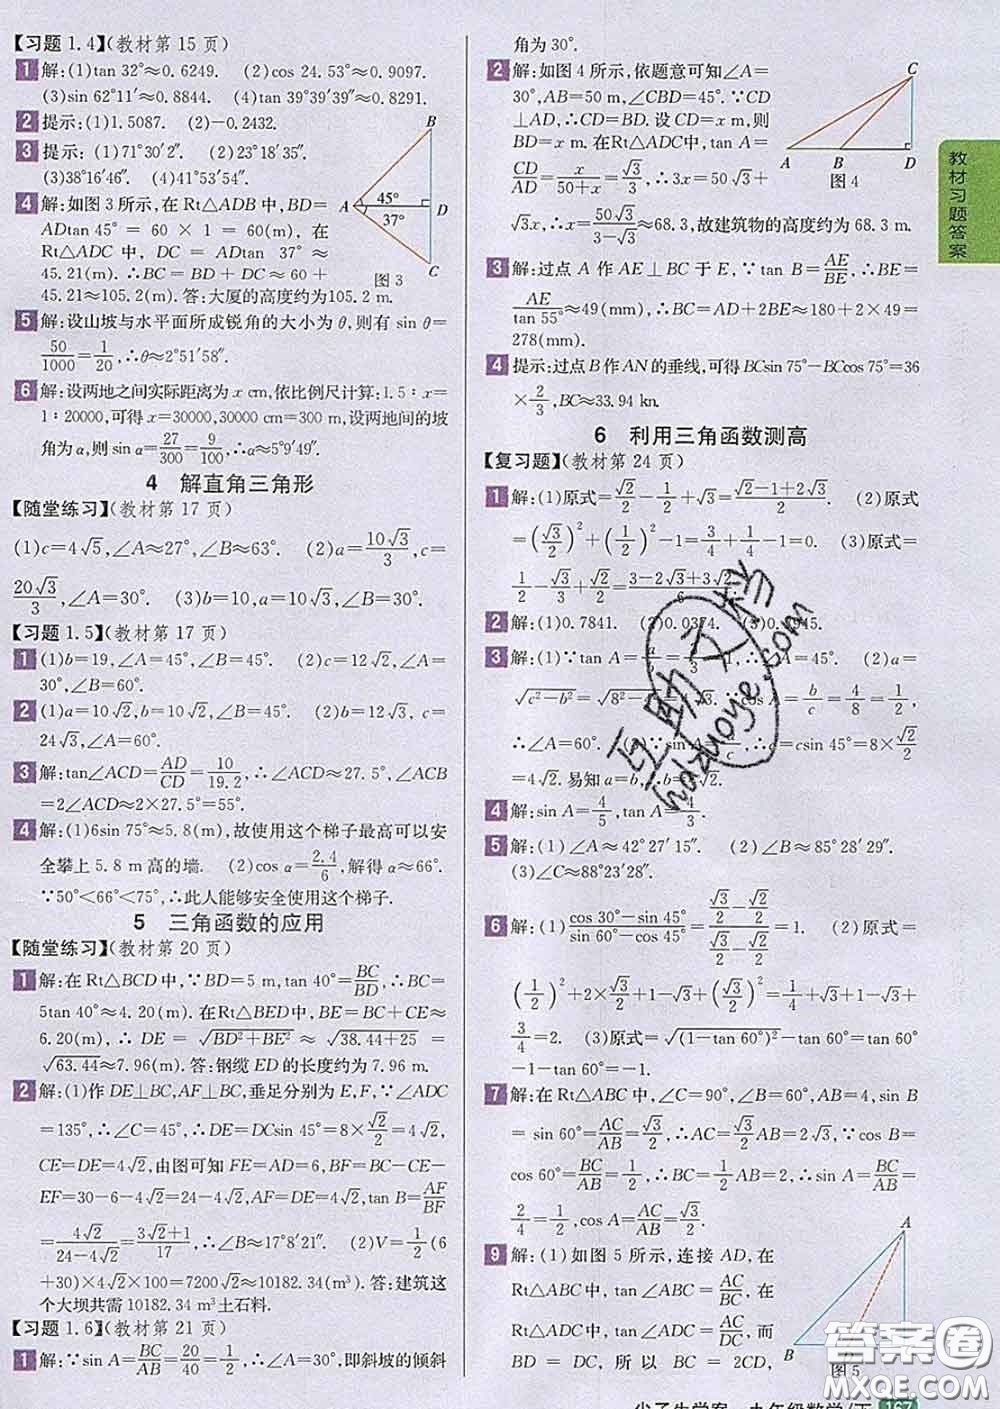 【习题 1.4】(教材第 15 页)
1 解:(1)tan 32°≈0.6249. (2)cos 24.53°≈0.9097.
(3)sin 62°11′≈0.8844. (4)tan 39°39′39″≈0.8291.
2 提示:(1)1.5087. (2)-0.2432.
3 提示:(1)71°30′2″. (2)23°18′35″.
(3)38°16′46″. (4)41°53′54″.
4 解:如图 3 所示,在 Rt△ADB 中,BD=
ADtan 45° = 60 × 1 = 60(m), 在
Rt△ADC 中, DC = ADtan 37° ≈
45.21(m). ∴BC = BD + DC ≈ 60 +
45.21≈105.2(m). 答:大厦的高度约为105.2 m.
B
A
45°
37°
D
C
图 3
5 解:设山坡与水平面所成锐角的大小为 θ,则有 sin θ=
50/1000=1/20,∴θ≈2°51′58″.
6 解:设两地之间实际距离为 x cm,依比例尺计算:1.5∶x=
1∶20000,可得 x=30000,30000 cm=300 m,设两地间的坡
角为 α,则 sin α=27/300=9/100,∴α≈5°9′49″.
4 解直角三角形
【随堂练习】(教材第 17 页)
(1)c=4√5,∠A≈27°,∠B≈63°. (2)a=10√3/3,c=
20√3/3,∠A=30°. (3)b=10,a=10√3,∠B=30°.
【习题 1.5】(教材第 17 页)
1 (1)b=19,∠A=45°,∠B=45°. (2)c=12√2,∠A=
30°,∠B=60°.
2 (1)a=10√2,b=10√2,∠B=45°. (2)b=12, c=
24√3,∠A=60°.
3 解:tan∠ACD=AD/CD=10/19.2,∴∠ACD≈27.5°,∠ACB
=2∠ACD≈2×27.5°=55°.
4 解:(1)6sin 75°≈5.8(m),故使用这个梯子最高可以安
全攀上 5.8 m 高的墙. (2)cos α=2.4/6,解得 α≈66°.
∵50°<66°<75°,∴此人能够安全使用这个梯子.
5 三角函数的应用
【随堂练习】(教材第 20 页)
1 解:在 Rt△BCD 中,∵BD=5 m,tan 40°=BC/BD,∴BC=
5tan 40°≈4.20(m). 在 Rt△BED中,BE=BC+CE=
6.20(m). ∴ DE = √(BD²+BE²) ≈ √(38.44+25) =
√63.44≈7.96(m). 答:钢缆 ED 的长度约为 7.96 m.
2 解:(1)作 DE⊥BC,AF⊥BC,垂足分别为 E,F,∵∠ADC
=135°,∴∠C=45°,∴DE=DCsin 45°=8×√2/2=4√2,
CE=DE=4√2,由图可知 FE=AD=6,BF=BC-CE-
EF=30-6-4√2=24-4√2,AF=DE=4√2,tan B=AF/BF
=4√2/(24-4√2)=(3√2+1)/17,∴∠ABC≈17°8′21″. (2)V=1/2(6
+30)×4√2×100=7200√2≈10182.34(m³). 答:建筑这
个大坝共需 10182.34 m³土石料.
【习题 1.6】(教材第 21 页)
1 解:∵sin A=BC/AB=20/40=1/2,∴∠A=30°,即斜坡的倾斜
角为 30°.
2 解:如图 4 所示,依题意可知∠A=
30°,AB=50 m,∠CBD=45°. ∵CD
⊥AD,∴CD=BD. 设 CD=x m,则
BD=x m. 在 Rt△ACD 中,tan A=
CD/AD=x/(50+x)=√3/3,∴3x=50√3+
√3x,x=50√3/(3-√3)≈68.3,故建筑物的高度约为 68.3 m.
C
A
B
D
图 4
3 解:过点 A 作 AE⊥BC 于 E,∵tan B=AE/BE,∴BE=
AE/tan 55°≈49(mm),∴BC=AD+2BE≈180+2×49=
278(mm).
4 提示:过点 B 作 AN 的垂线,可得 BCsin 75°-BCcos 75°=36
×2/3,BC≈33.94 kn.
6 利用三角函数测高
【复习题】(教材第 24 页)
1 解:(1)原式=√2/2-1/2+√3=(√2-1+2√3)/2. (2)原式
=(√3/2)²+(1/2)²-1=3/4+1/4-1=0. (3)原式=
1/2-√3/3+√2/2=(3-2√3+3√2)/6.
2 解:(1)0.7841. (2)0.0374.
3 解:(1)∵tan A=a/b
(2)a=
√(c²-b²)=√(8²-4²)
=b/c=4/8=1/2,
∴∠A=60°.
=c·sin 45°=8×√2/2
=4√2. 易知 a=b,∴b=4√2.
4 解:sin A=4/5,tan A=4/3.
5 解:(1)∠A≈42°27′15″. (2)∠B≈85°28′29″.
(3)∠C≈88°23′28″.
6 解:(1)(cos 30°-sin 45°)/(sin 60°-cos 45°)=(√3/2-√2/2)/(√3/2-√2/2)=1. (2)原式=
(1/2)²+2×√3/2×1/√3+(√3/2)²=1/4+√3×1/√3+
3/4=2. (3)原式=√((1-tan 60°)²)-tan 60°=
-1-tan 60°+tan 60°=-1.
7 解:在 Rt△ABC 中,∠C=90°,∠B=60°,AB=4,sin B
= sin 60°=AC/AB=√3/2,∴AC=√3/2AB=√3/2×4=2√3,
cos 60°=BC/AB=1/2,∴BC=1/2AB=1/2×4=2,sin A=BC/AB=
2/4=1/2,cos A=AC/AB=√3/2.
9 解:(1)如图 5 所示,连接 AD,在
Rt△ABC 中,tan∠ABC=AC/BC,在
Rt△ADC 中, tan∠ADC=AC/DC, 而
BD = DC, 所 以 BC = 2CD,
A
B
D
图 5
教材习题答案
互助文档
hdzuoye.com
答案圈
MXQE.COM
尖子生学案 九年级数学/下 167